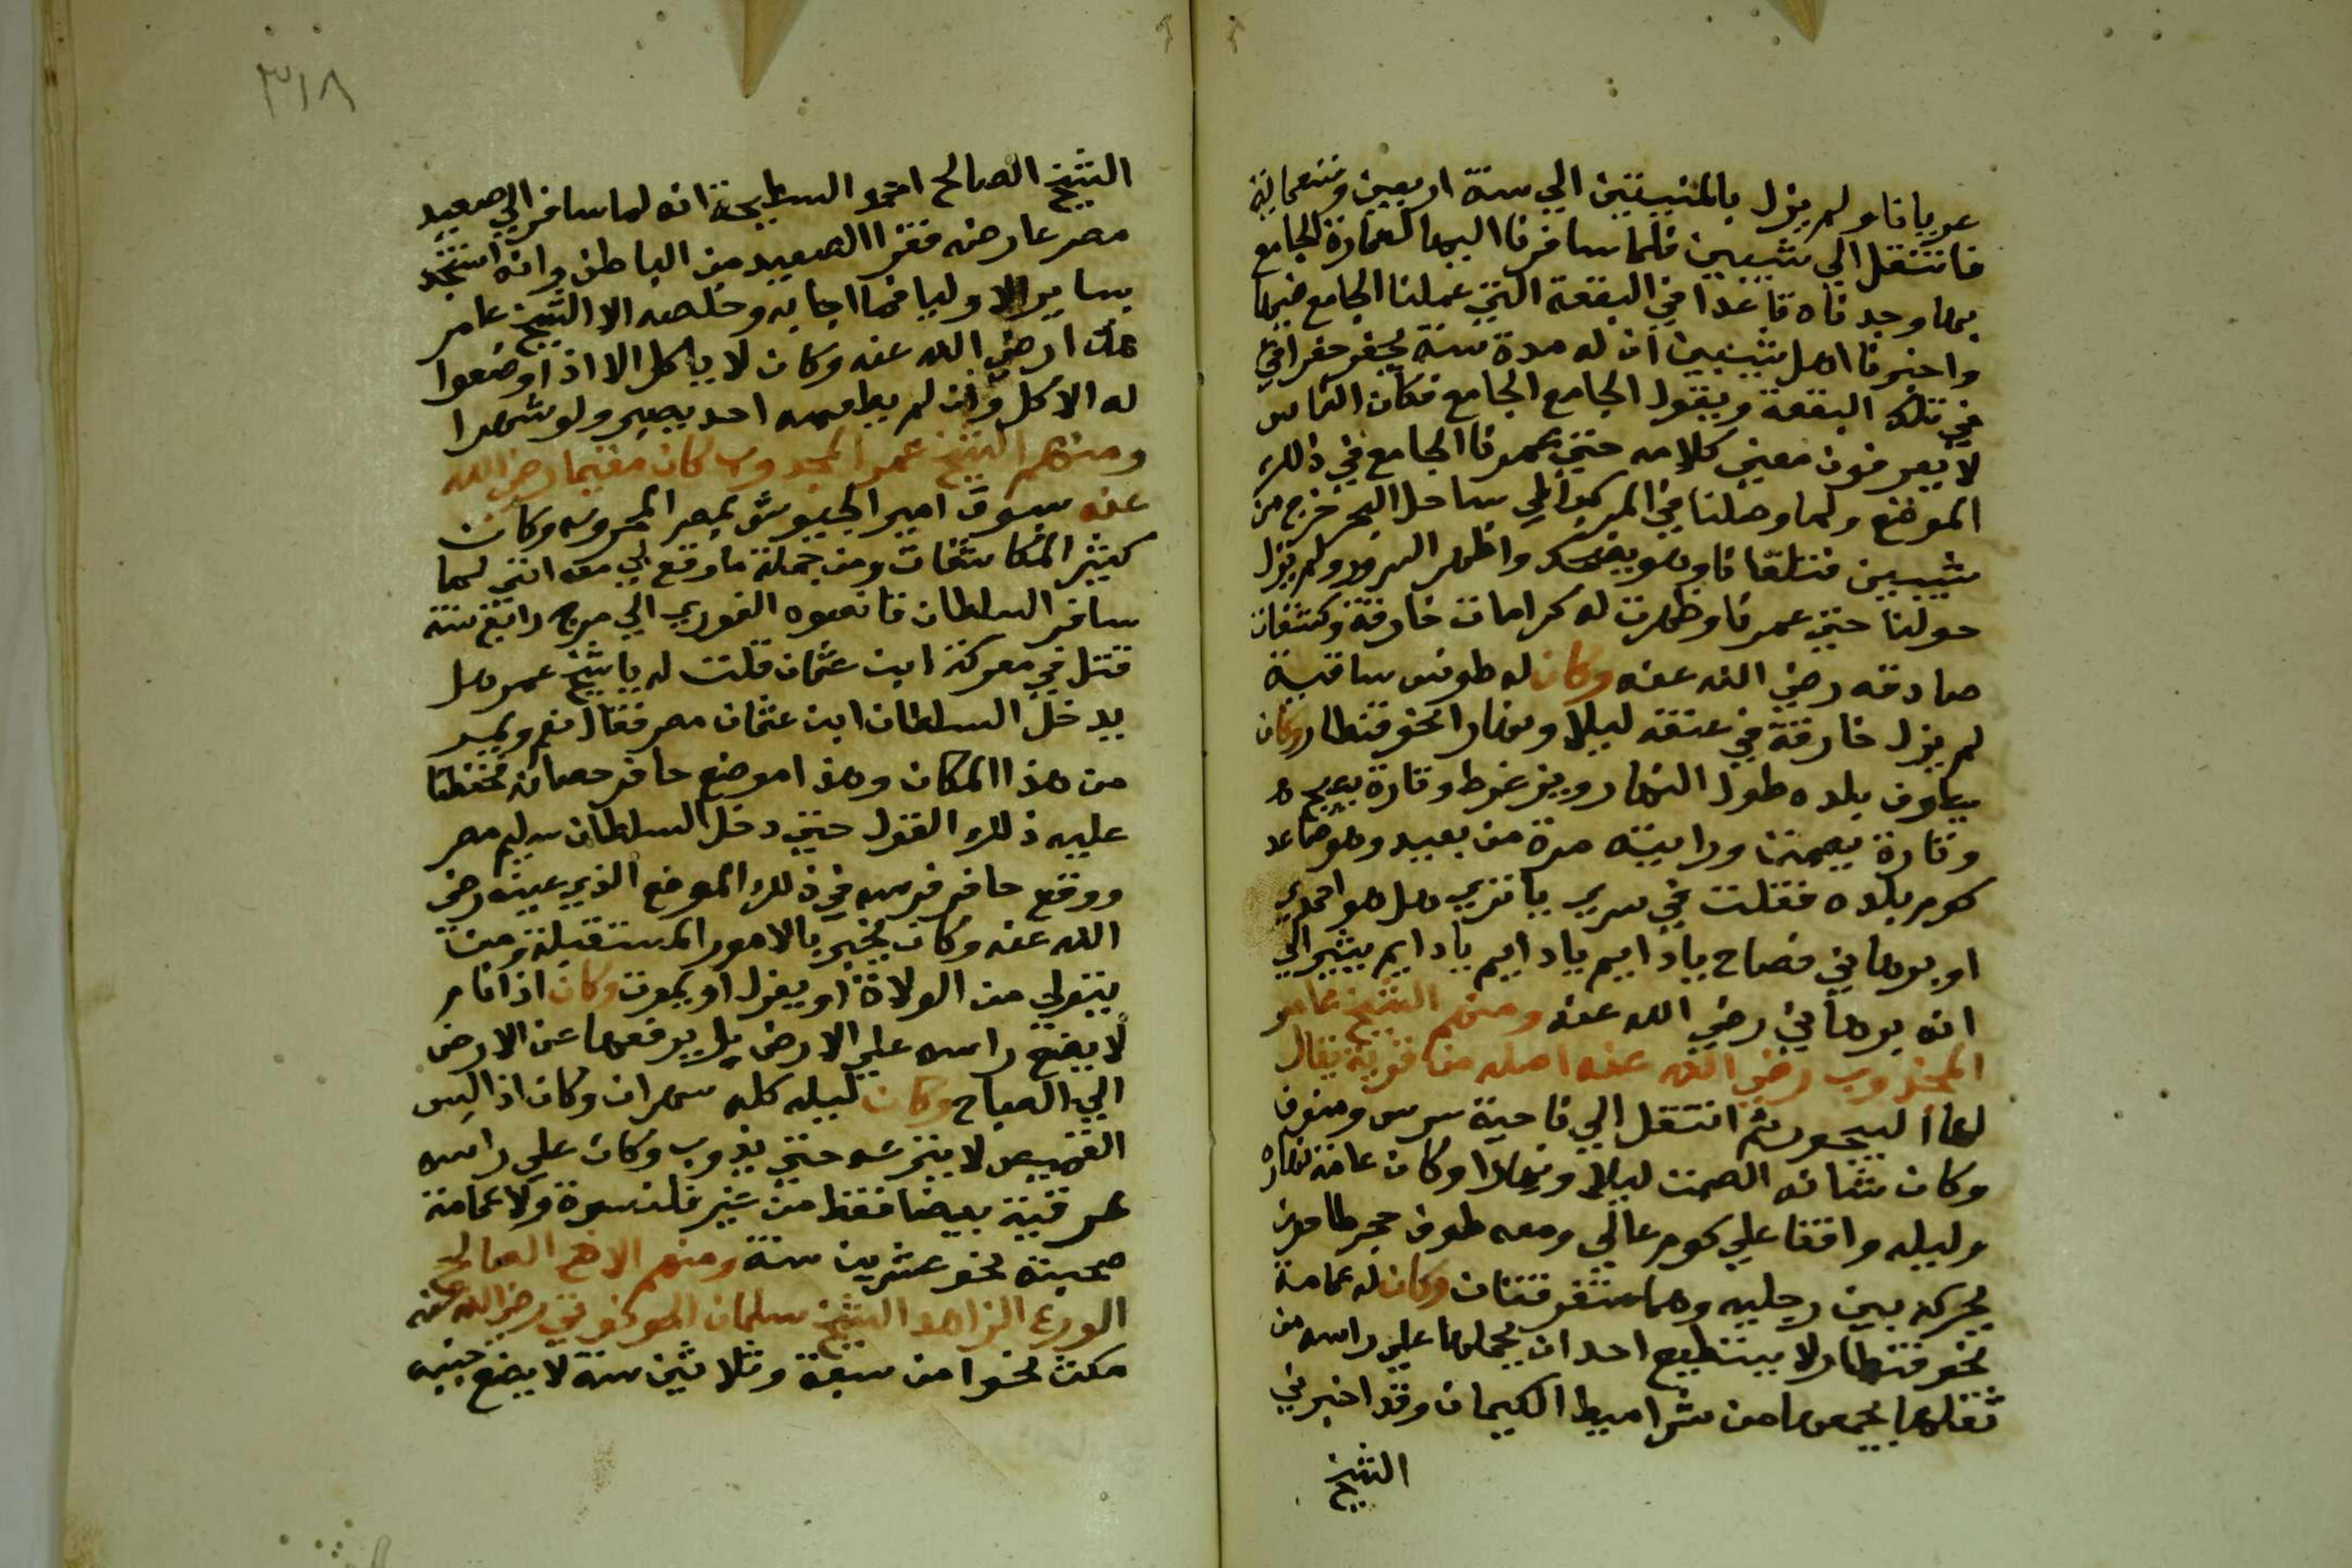 عريانا ولم يزل بالمنيبتين الي سنة اربعين وتسعماية
فانتقل الي شيبين فلما سافرنا اليها لعمارة الجامع
بها وجدناه قاعدا في البقعة التي عملنا الجامع فيها
واخبرنا اهل شيبين ان له مدة سنة يحفر حفرا في
في تلك البقعة ويقول الجامع الجامع فكان الناس
لا يعرفون معني كلامه حتي عمرنا الجامع في ذلك
الموضع ولما وصلنا في المركب الي ساحل البحر خرج من
شيبين فتلقانا وهو يضحك واظهر السرور ولم يزل
حولنا حتي عمرنا وظهرت له كرامات خارقة وكشفات
صادقه رضي الله عنه وكان له طوق ساقية
لم يزل خارقة في عنقه ليلا ونهارا نحو قنطار وكان
يطوف بلده طول النهار ويزغرط وتارة يصيح
وتارة يصمت ورايته مرة من بعيد وهو صاعد
كوم بلده فقلت في سري يا تري هل هو احمدي
او برهاني فصاح يا دايم يا دايم يا دايم يشير الي
انه برهاني رضي الله عنه ومنهم الشيخ عامر
المجذوب رضي الله عنه اصله من قرية يقال
لها البيجور ثم انتقل الي ناحية سرس ومنوف
وكان شانه الصمت ليلا ونهارا وكان عامة نهاره
وليله واقفا علي كوم عالي ومعه طوق حجر طاحون
يحركه بين رجليه وهما متفرقتان وكان له عمامة
نحو قنطار لا يستطيع احد ان يحملها علي راسه من
ثقلها يجمعها من شراميط الكيمان وقد اخبرني
الشيخ
٣١٨
الشيخ الصالح احمد السطيحة انه لما سافر الي صعيد
مصر عارضه فقرا الصعيد من الباطن وانه استنجد
بساير الاوليا فما اجابه وخلصه الا الشيخ عامر
هذا رضي الله عنه وكان لا ياكل الا اذا وضعوا
له الاكل وان لم يطعمه احد يصبر ولو شهرا
ومنهم الشيخ عمر المجذوب كان مقيما رضي الله
عنه بسوق امير الجيوش بمصر المحروسه وكان
كثير المكاشفات ومن جملة ما وقع لي معه انني لما
سافر السلطان قانصوه الغوري الي مرج دابق سنة
قتل في معركة ابن عثمان قلت له يا شيخ عمر هل
يدخل السلطان ابن عثمان مصر فقال نعم ويمر
من هذا المكان وهذا موضع حافر حصانه فحفظنا
عليه ذلك القول حتي دخل السلطان سليم مصر
ووقع حافر فرسه في ذلك الموضع الذي عينه رضي
الله عنه وكان يخبر بالامور المستقبلة ومن
يتولي من الولاة او يعزل او يموت وكان اذا نام
لا يضع راسه علي الارض بل يرفعها عن الارض
الي الصباح وكان ليله كله سهران وكان اذا لبس
القميص لا ينزعه حتي يذوب وكان علي راسه
عرقية بيضا فقط من غير قلنسوة ولا عمامة
صحبته نحو عشرين سنة ومنهم الاخ الصالح
الورع الزاهد الشيخ سلمان الحوخوني رضي الله عنه
مكث نحوا من سبعة وثلاثين سنة لا يضع جنبه